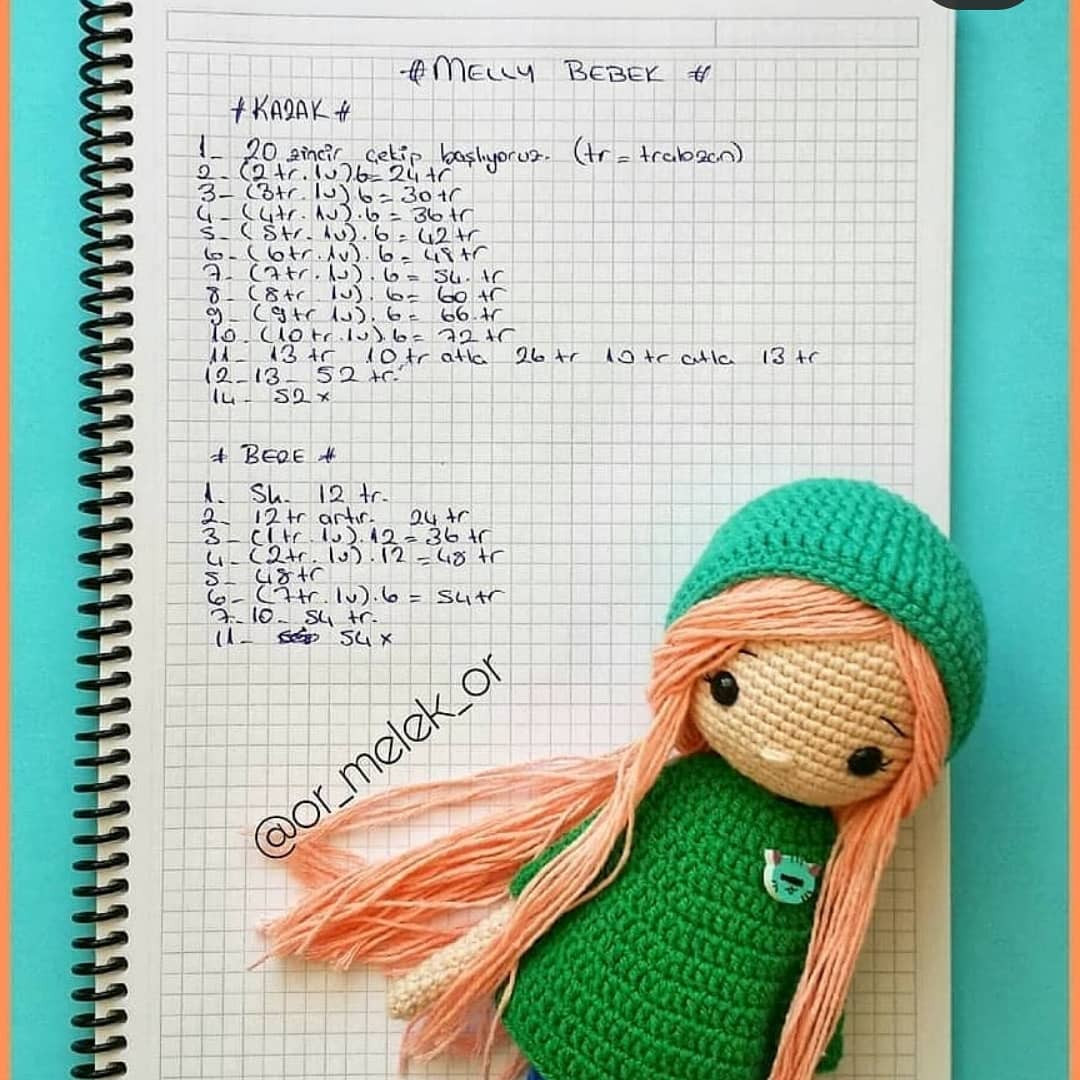 # MELLY BEBEK #
# KAZAK #
1- 20 zincir çekip başlıyoruz. (tr = trabzan)
2- (2 tr. 1v).6= 24 tr
3- (3tr. 1v) 6 = 30 tr
4- (4tr. 1v).6 = 36 tr
5- (5tr. 1v). 6 = 42 tr
6- (6tr. 1v). 6 = 48 tr
7- (7tr. 1v). 6 = 54. tr
8- (8tr 1v). 6= 60 tr
9- (9tr 1v). 6= 66. tr
10. (10 tr. 1v) 6= 72 tr
11- 13 tr 10 tr atla 26 tr 10 tr atla 13 tr
12-13- 52 tr.
14- 52 x
# BERE #
1. Sh. 12 tr.
2- 12 tr artır. 24 tr
3- (1tr. 1v).12 = 36 tr
4- (2tr. 1v).12 = 48 tr
5- 48 tr
6- (7tr. 1v).6 = 54 tr
7-10- 54 tr.
11- 54 x
@or_melek_or